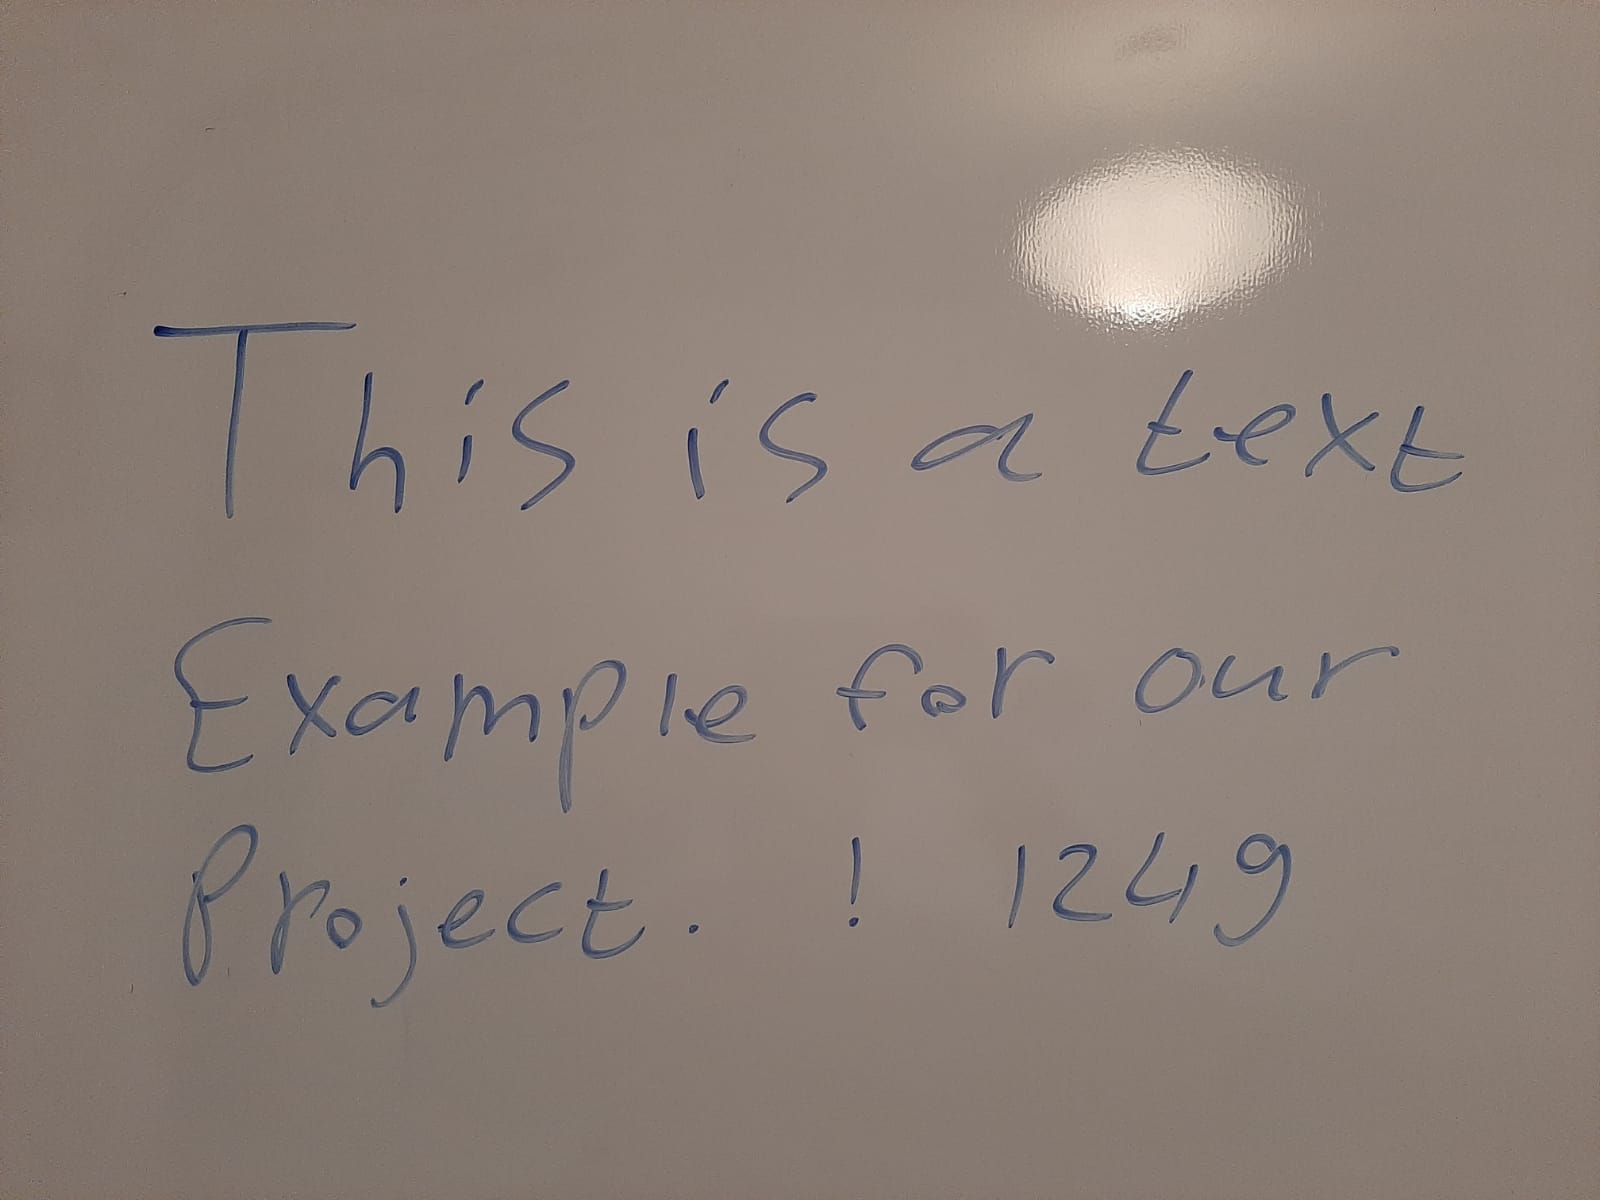 This is a text
Example for our
Project. ! 1249